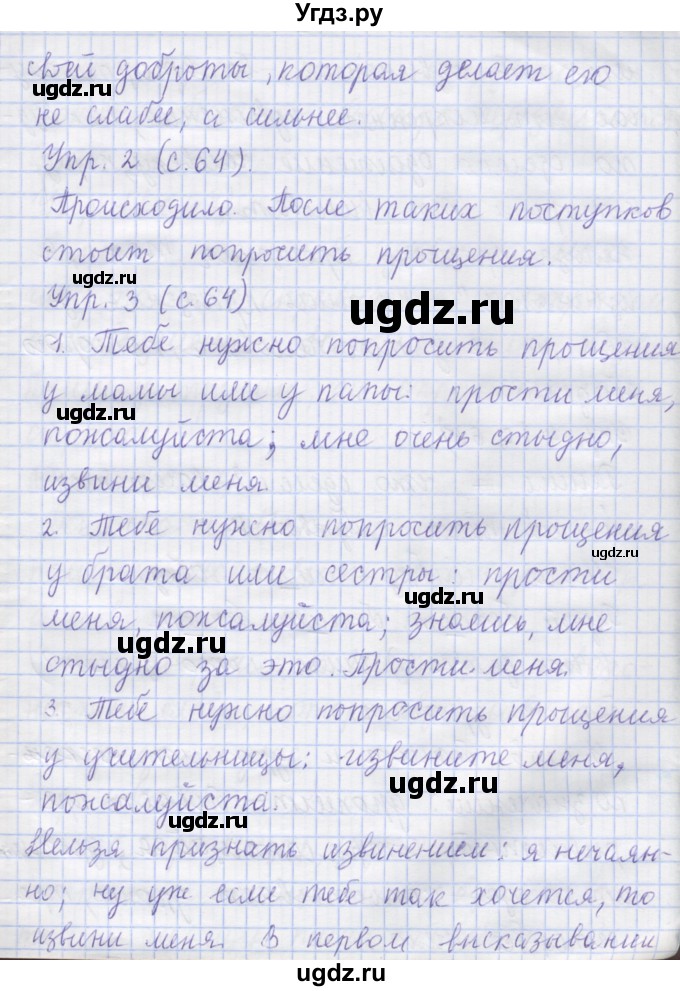 Угдз.ру
своей доброты, которая делает его
ugdz.ru
не слабее, а сильнее.
Упр. 2 (с. 64).
Происходило. После таких поступков
стоит попросить прощения.
ugdz.ru
Упр. 3 (с. 64)
ugdz.ru
1. Тебе нужно попросить прощения
у мамы или у папы: прости меня,
ugdz.ru
пожалуйста; мне очень стыдно,
извини меня.
2. Тебе нужно попросить прощения
ugdz.ru
у брата или сестры: прости
ugdz.ru
меня, пожалуйста; знаешь, мне
ugdz.ru
стыдно за это. Прости меня.
3. Тебе нужно попросить прощения
у учительницы: извините меня,
ugdz.ru
пожалуйста.
ugdz.ru
Нельзя признать извинением: я нечаян-
но; ну уж если тебе так хочется, то
извини меня. В первом высказывании
ugdz.ru
ugdz.ru